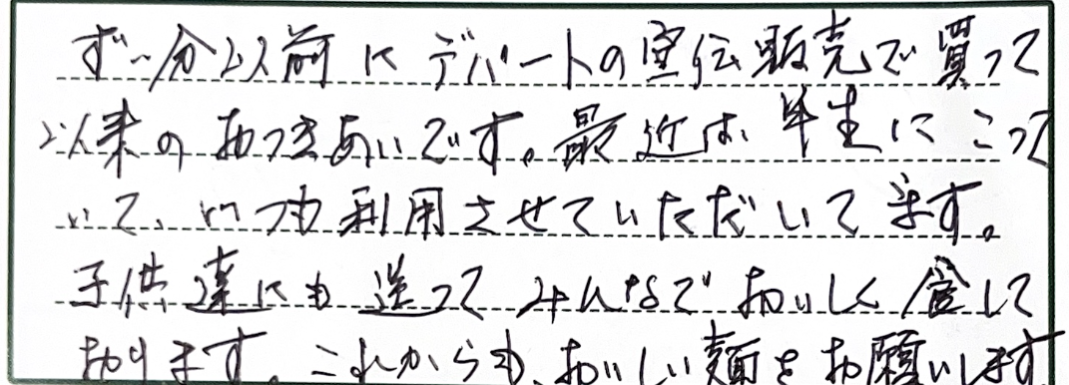 ずい分以前にデパートの宣伝販売で買って
以来のおつきあいです。最近は半生にこって
いて、いつも利用させていただいてます。
子供達にも送ってみんなでおいしく食して
おります。これからも、おいしい麺をお願いします